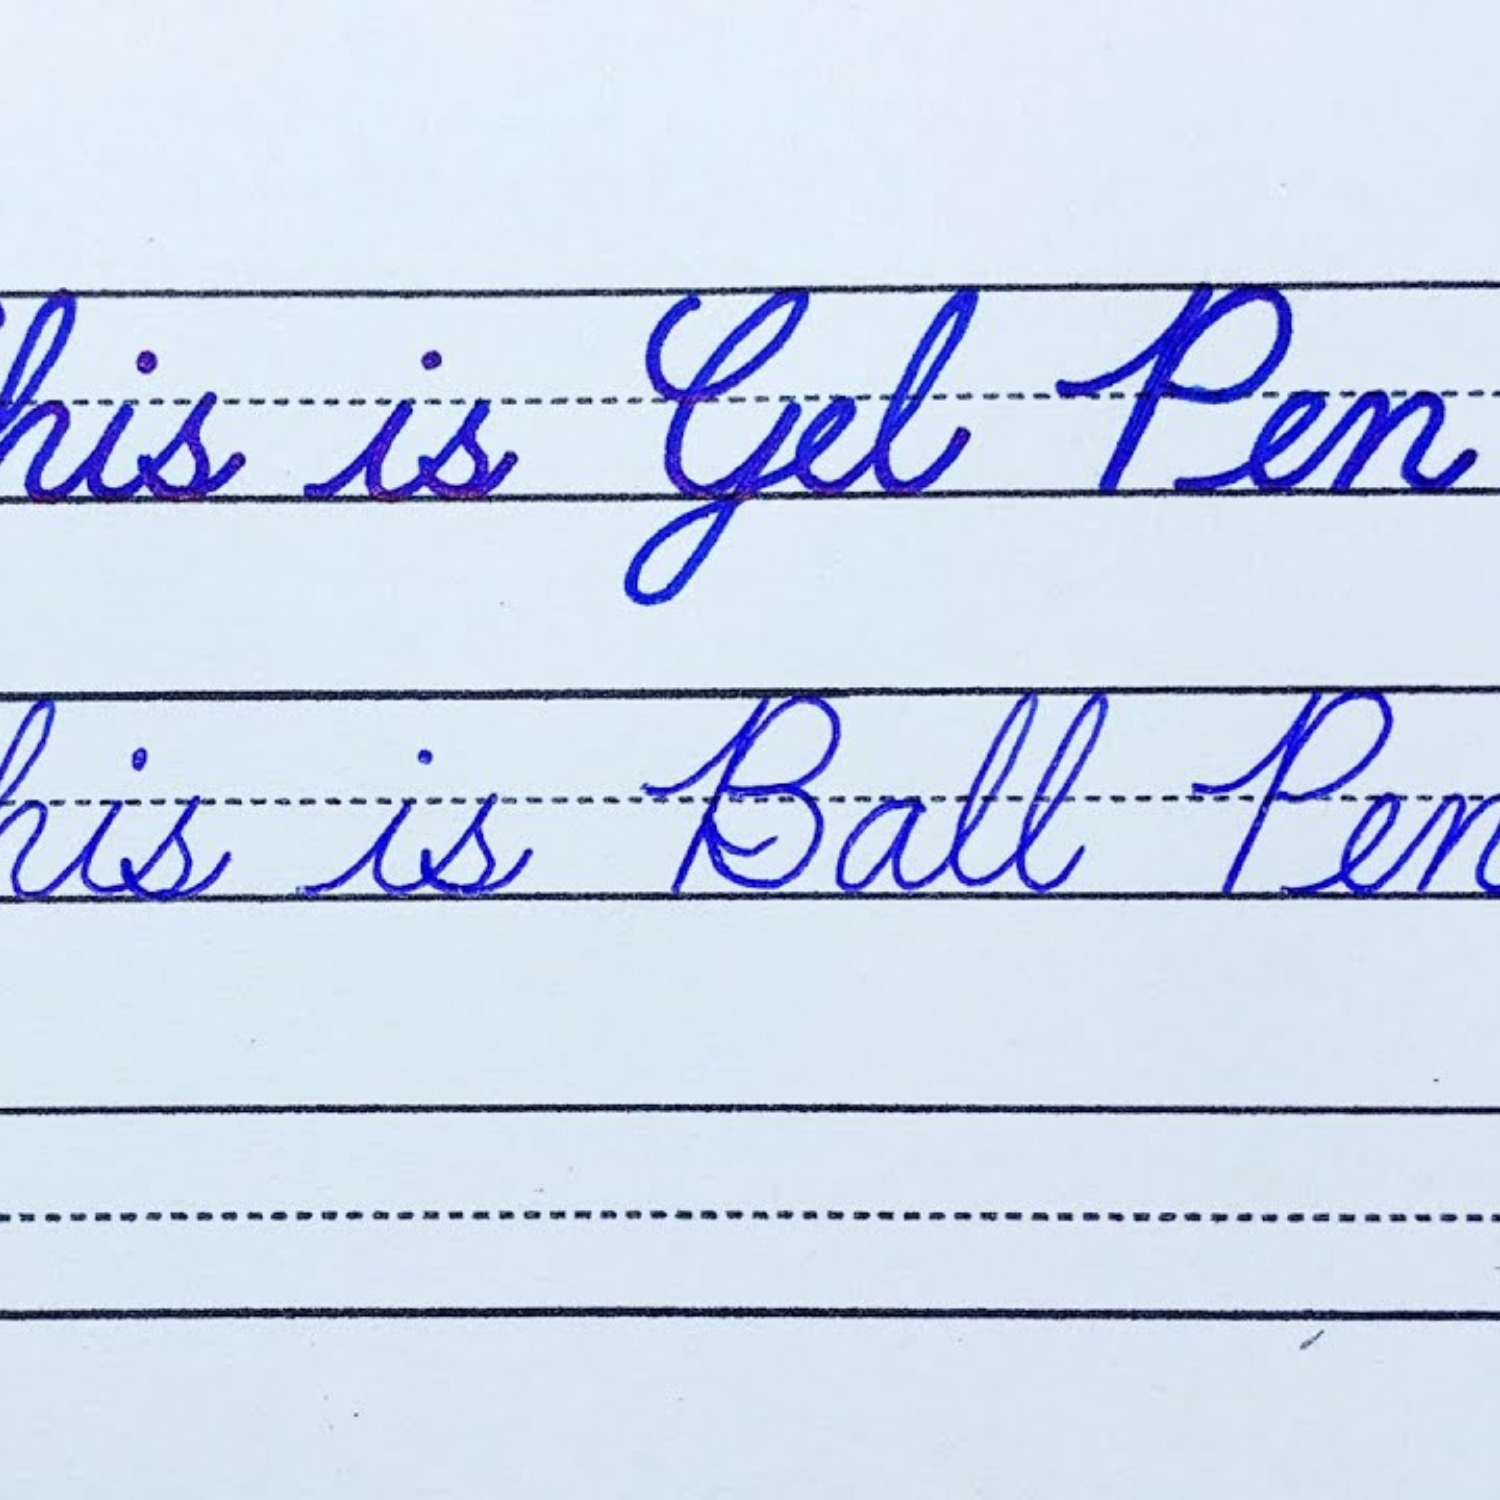 his is Gel Pen
his is Ball Pen